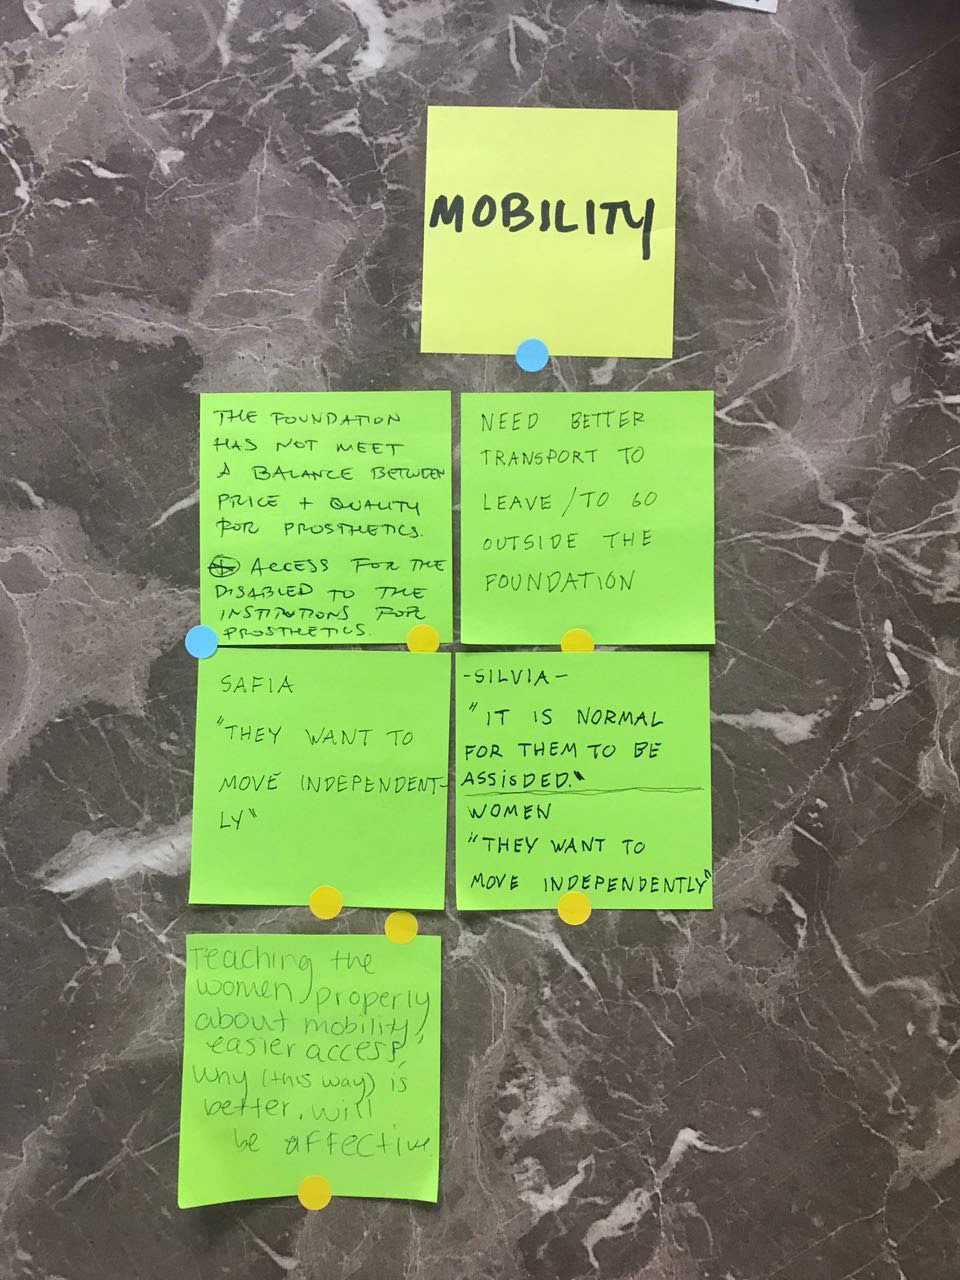 MOBILITY
THE FOUNDATION
HAS NOT MEET
A BALANCE BETWEEN
PRICE + QUALITY
FOR PROSTHETICS.
⊕ ACCESS FOR THE
DISABLED TO THE
INSTITUTIONS FOR
PROSTHETICS.
NEED BETTER
TRANSPORT TO
LEAVE / TO GO
OUTSIDE THE
FOUNDATION
SAFIA
"THEY WANT TO
MOVE INDEPENDENT-
LY"
-SILVIA-
"IT IS NORMAL
FOR THEM TO BE
ASSISDED."
WOMEN
"THEY WANT TO
MOVE INDEPENDENTLY"
Teaching the
women properly
about mobility,
easier access,
why (this way) is
better, will
be affective